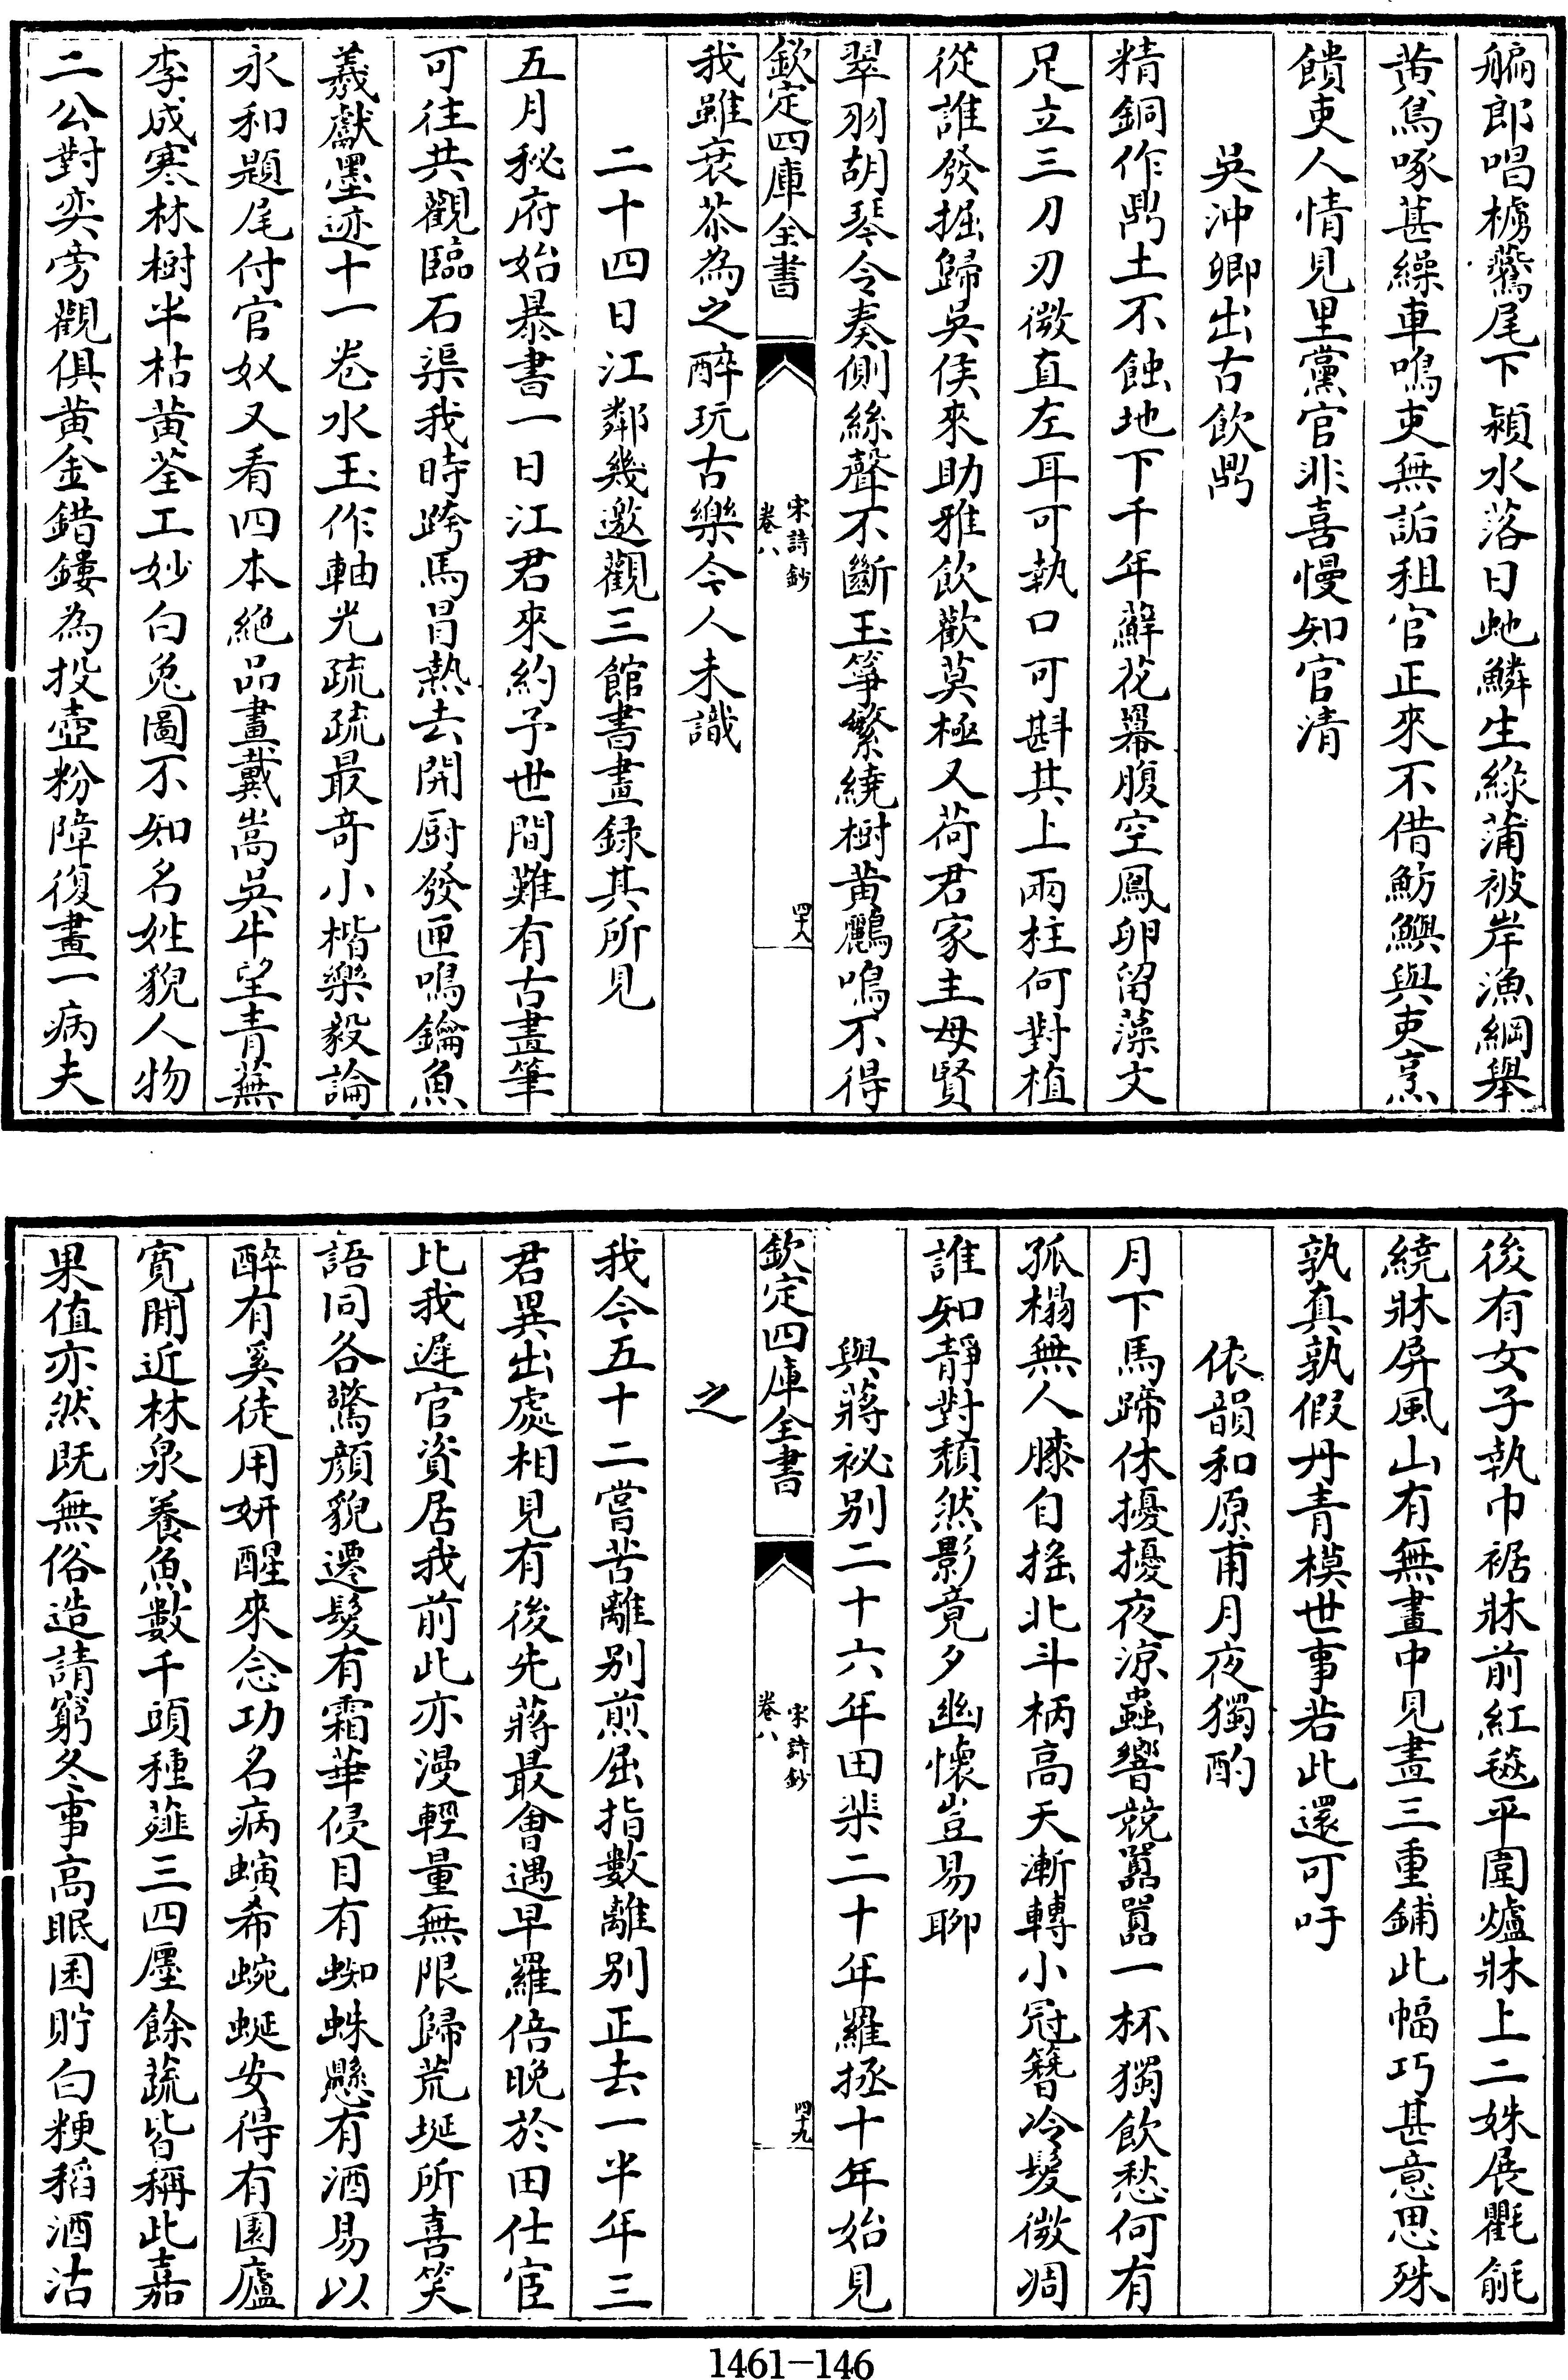 艑郎唱櫓鷖尾下潁水落日虵鱗生綠蒲被岸漁網舉
黄鳥啄葚繰車鳴吏無詬租官正來不借魴鱮與吏烹
饋吏人情見里黨官非喜慢知官清
吳沖卿出古飲鼎
精銅作鼎土不蝕地下千年蘚花羃腹空鳳卵留藻文
足立三刀刃微直左耳可執口可斟其上兩柱何對植
從誰發掘歸吳侯來助雅飲歡莫極又荷君家主母賢
翠羽胡琴令奏側絲聲不斷玉箏繁繞樹黄鸝鳴不得
欽定四庫全書 宋詩鈔 卷八 四十八
我雖衰苶為之醉玩古樂今人未識
二十四日江鄰幾邀觀三館書畫録其所見
五月秘府始暴書一日江君來約予世間難有古畫筆
可往共觀臨石渠我時跨馬冒熱去開厨發匣鳴鑰魚
羲獻墨迹十一卷水玉作軸光疏疏最竒小楷樂毅論
永和題尾付官奴又看四本絶品畫戴嵩吳牛望青蕪
李成寒林樹半枯黄荃工妙白兎圖不知名姓貌人物
二公對奕旁觀俱黄金錯鏤為投壺粉障復畫一病夫
後有女子執巾裾牀前紅毯平圍爐牀上二姝展氍毹
繞牀屏風山有無畫中見畫三重鋪此幅巧甚意思殊
孰真孰假丹青模世事若此還可吁
依韻和原甫月夜獨酌
月下馬蹄休擾擾夜涼蟲響競嚣嚣一杯獨飲愁何有
孤榻無人膝自揺北斗柄高天漸轉小冠簪冷髮微凋
誰知靜對頽然影竟夕幽懷豈易聊
與蔣祕别二十六年田棐二十年羅拯十年始見
欽定四庫全書 宋詩鈔 卷八 四十九
之
我今五十二嘗苦離别煎屈指數離别正去一半年三
君異出處相見有後先蔣最㑹遇早羅倍晚於田仕宦
比我遲官資居我前此亦漫輕量無限歸荒埏所喜笑
語同各驚顔貌遷髮有霜華侵目有蜘蛛懸有酒易以
醉有奚徒用妍醒來念功名病螾希蜿蜒安得有園廬
寛閒近林泉養魚數千頭種薤三四㕓餘蔬皆稱此嘉
果值亦然既無俗造請窮冬事高眠囷貯白粳稻酒沽
1461—146